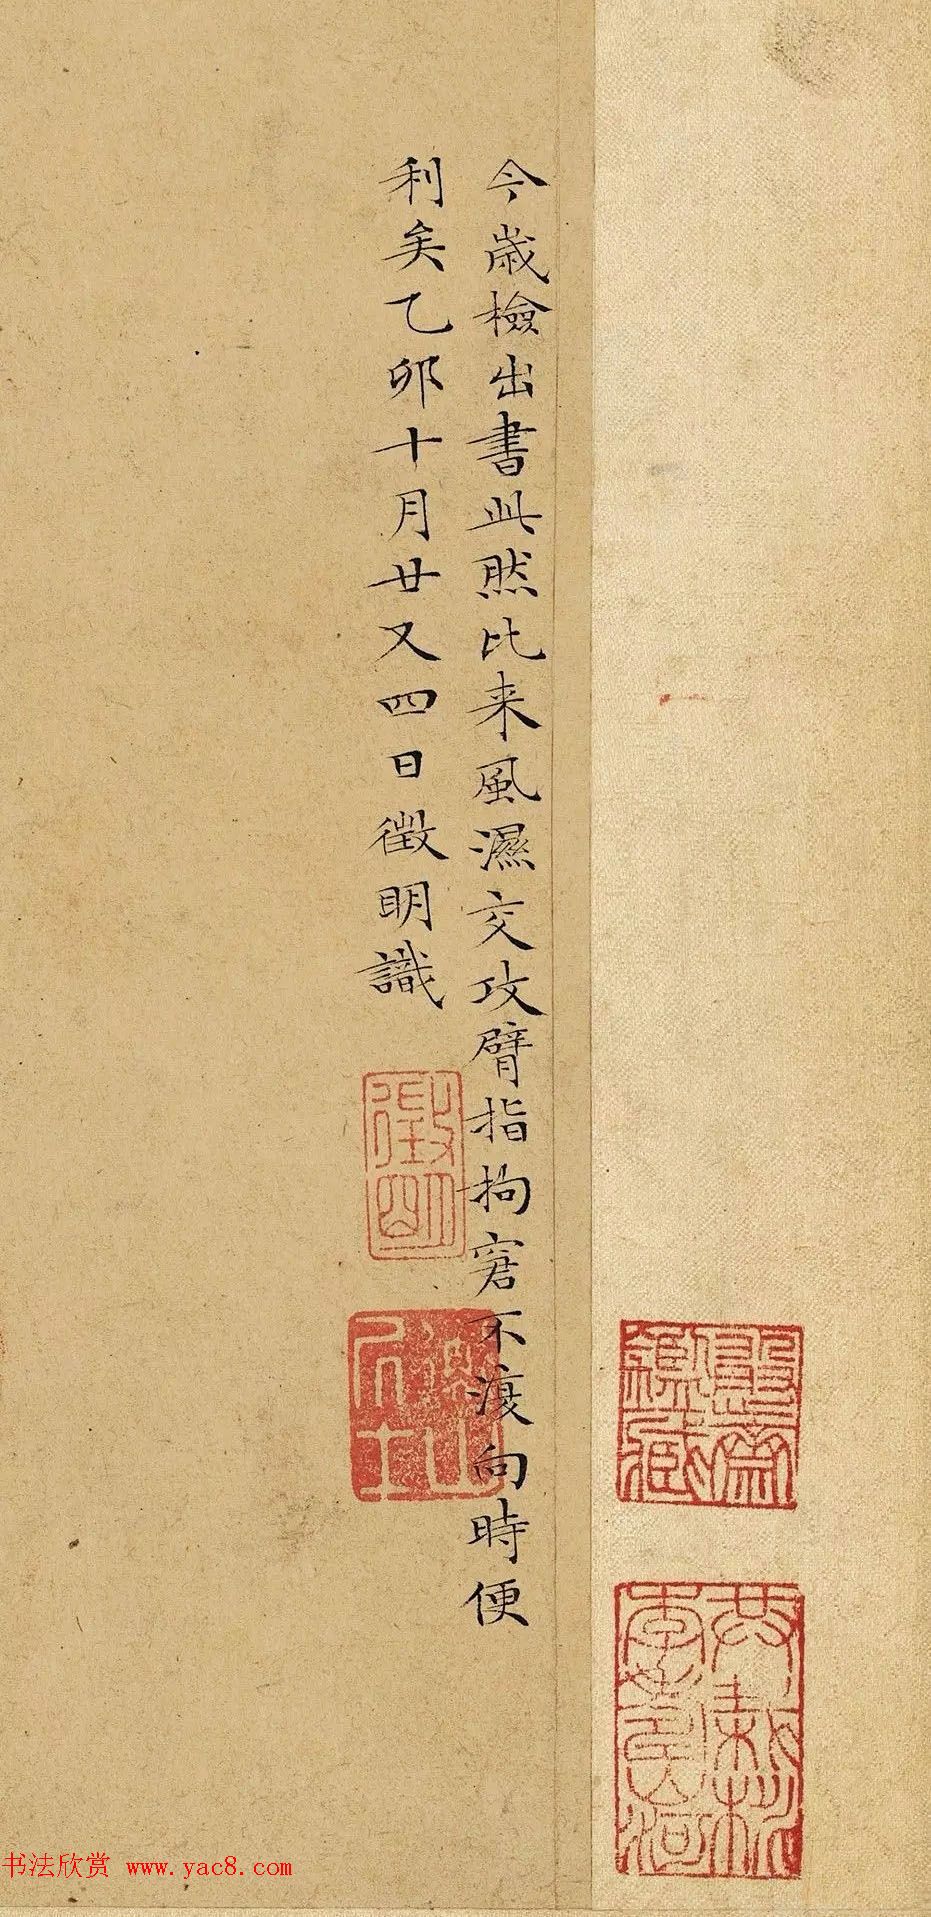 今歲檢出書此然比来風濕交攻臂指拘窘不復向時便
利矣乙卯十月廿又四日徵明識
徵明
衡山居士
书法欣赏 www.yac8.com